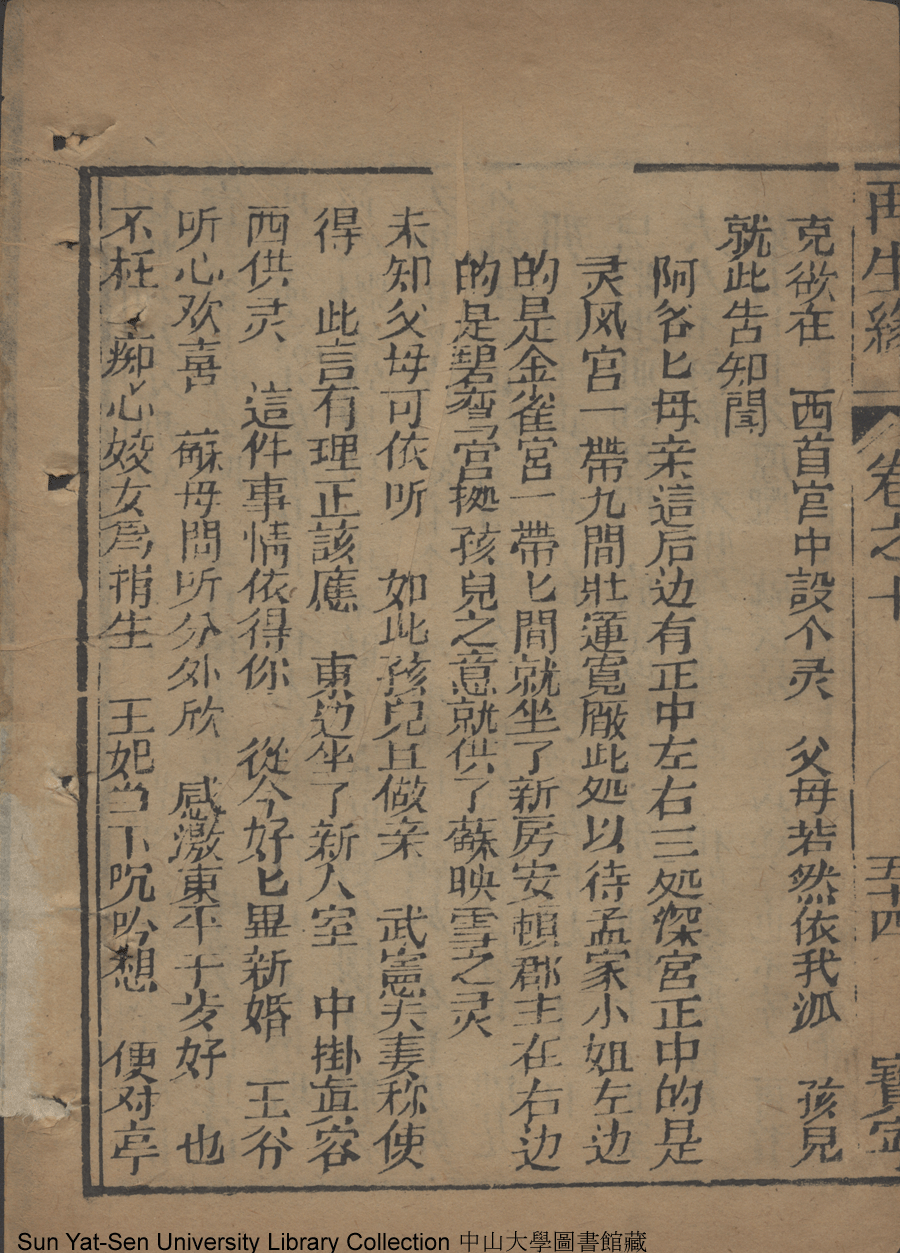 再生緣 卷之十 五十四 寶寧
克欲在 西首宫中設个灵 父母若然依我派 孩兒
就此告知聞
阿爷匕母亲這后边有正中左右三处深宮正中的是
灵凤宫一帶九間壯運寬厰此处以待孟家小姐左边
的是金雀宮一帶匕間就坐了新房安頓郡主在右边
的是碧鸞宫拠孩兒之意就供了蘇映雪之灵
未知父母可依听 如此孩兒且做亲 武憲夫妻称使
得 此言有理正該應 東边坐了新人室 中掛真容
西供灵 這件事情依得你 從今好匕畢新婚 王爷
听心欢喜 蘇母間听分外欣 感激東平千歩好 也
不枉 痴心姣女爲捐生 王妃当下沉吟想 便对亭
Sun Yat-Sen University Library Collection 中山大學圖書館藏